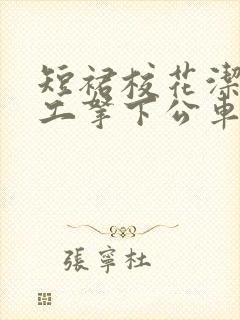 短裙校花潔
工拏下公車
張寧杜